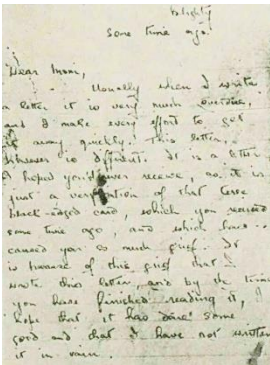 Blighty
Some time ago.
Dear Mom,
Usually when I write
a letter it is very much overdue,
and I make every effort to get
it away quickly. This letter,
however is different. It is a letter
I hoped you'd never receive, as it is
just a verification of that terse
black-edged card, which you received
some time ago, and which has
caused you so much grief. It
is because of this grief that I
write this letter, and by the time
you have finished reading it, I
hope that it has done some
good and that I have not written
it in vain.